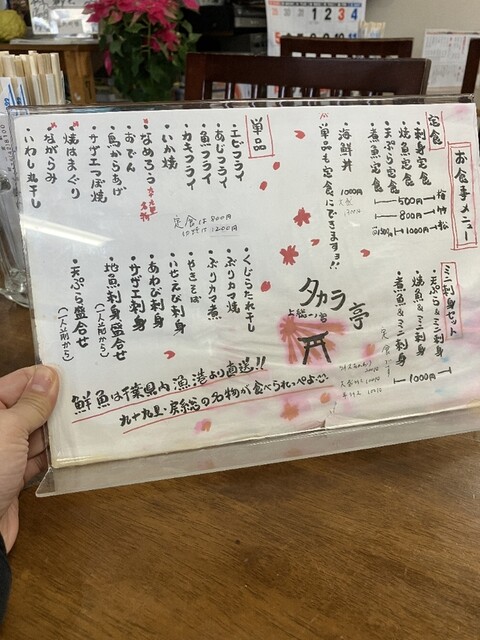 お食事メニュー
定食
・刺身定食
・焼魚定食
・天ぷら定食
・煮魚定食
梅 竹 松
500円
800円
1000円
・海鮮丼 1000円
単品も定食にできますョ!!
ミニ刺身セット
・天ぷら&ミニ刺身
・焼魚&ミニ刺身
・煮魚&ミニ刺身
1000円
単品
・エビフライ
・あじフライ
・魚フライ
・カキフライ
・いか焼
・なめろう
・おでん
・鳥からあげ
・サザエつぼ焼
・焼はまぐり
・ながらみ
・いわし丸干し
定食は800円
1200円
・くじらたれ干し
・ぶりカマ焼
・ぶりカマ煮
・やきそば
・いせえび刺身
・あわび刺身
・サザエ刺身
・地魚刺身盛合せ
(一人前から)
・天ぷら盛合せ
(一人前から)
タカラ亭
上総一宮
鮮魚は千葉県内漁港より直送!!
九十九里・房総の名物が食べられぃぺよ